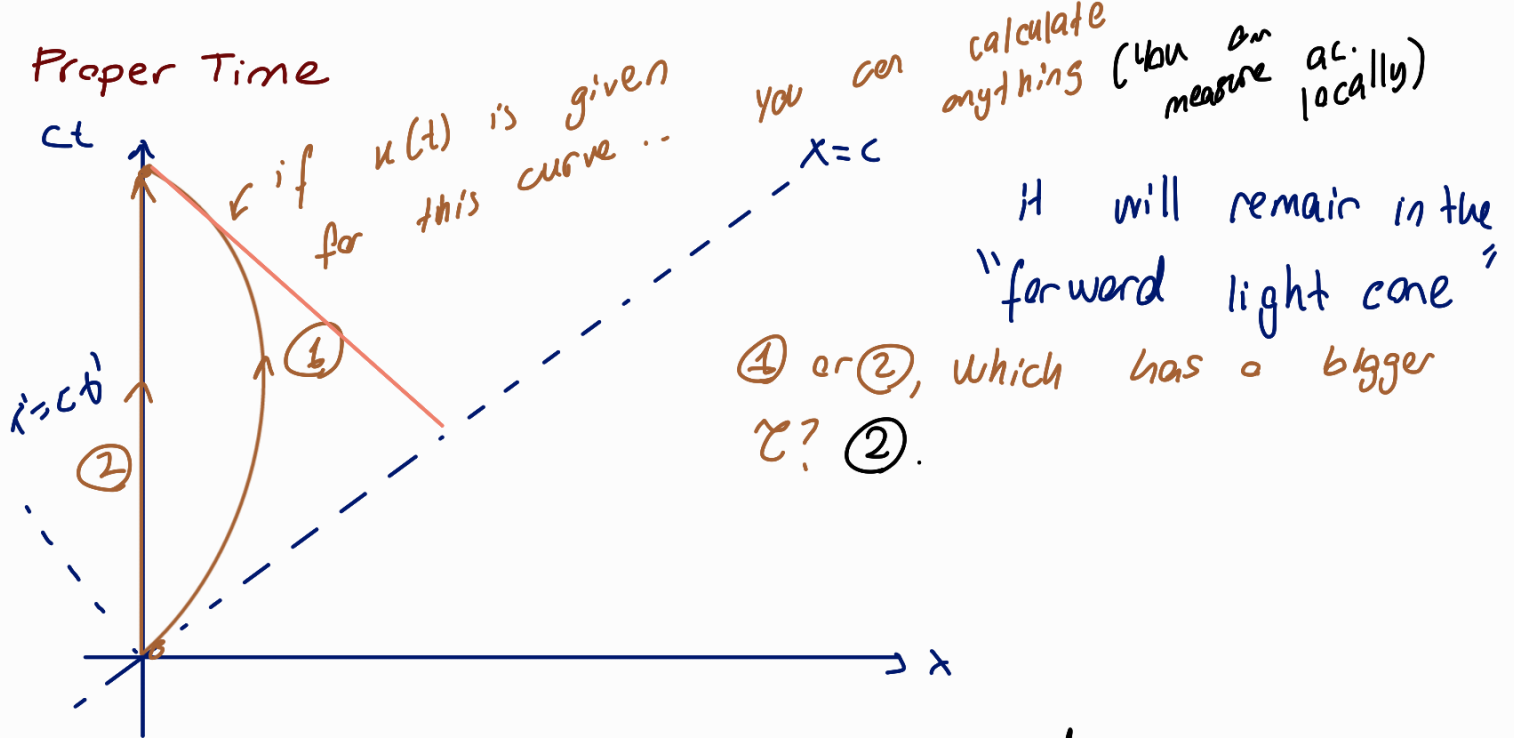 Proper Time
ct
if x(t) is given
for this curve ..
you can calculate
anything (you can
measure ac.
locally)
x=c
it will remain in the
"forward light cone"
① or ②, which has a bigger
τ? ②.
①
②
x